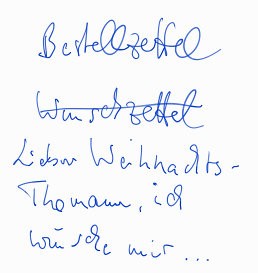 Bestellzettel
Wunschzettel
Lieber Weihnachts-
Thomann, ich
wünsche mir...